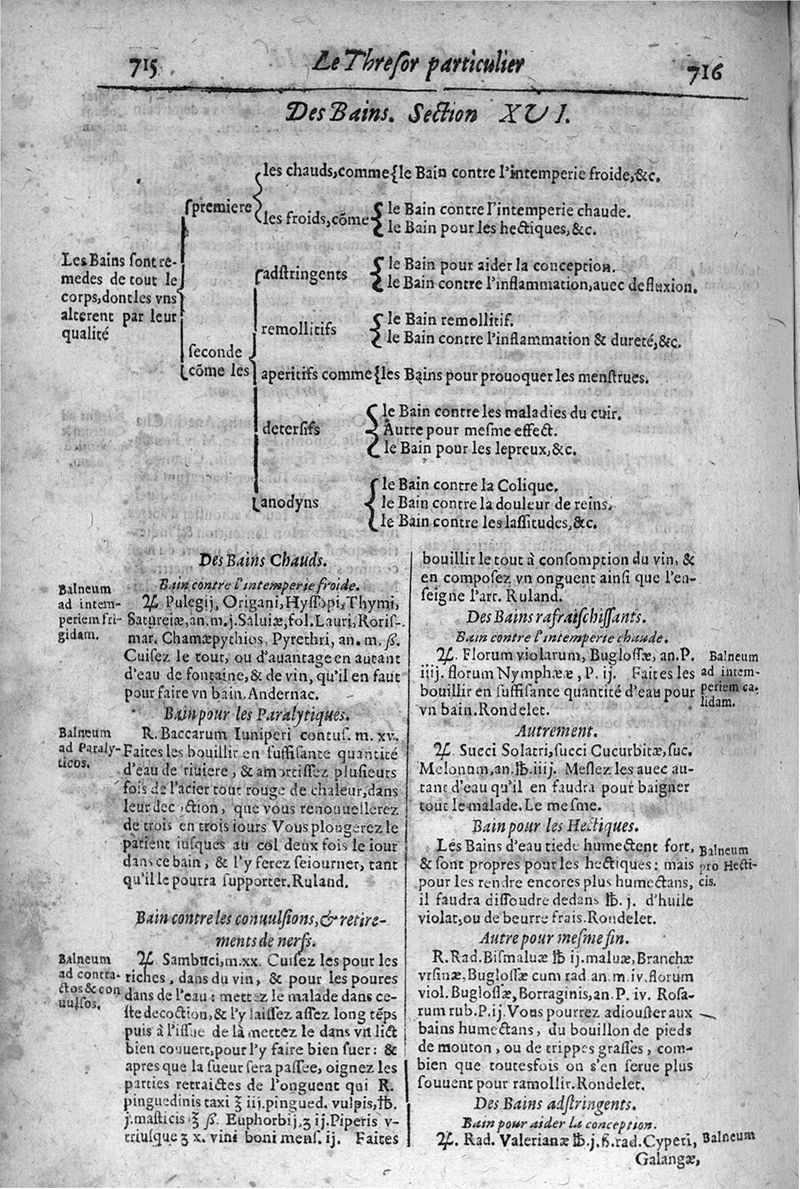 715
Le Thresor particulier
716
Des Bains. Section XVI.
Les Bains sont re-
medes de tout le
corps, dont les vns
alterent par leur
qualité
premiere
les chauds, comme {le Bain contre l'intemperie froide, &c.
les froids, cõme
le Bain contre l'intemperie chaude.
le Bain pour les hectiques, &c.
seconde
cõme les
adstringents
le Bain pour aider la conception.
le Bain contre l'inflammation, auec defluxion.
remollitifs
le Bain remollitif.
le Bain contre l'inflammation & dureté, &c.
aperitifs comme {les Bains pour prouoquer les menstrues.
detersifs
le Bain contre les maladies du cuir.
Autre pour mesme effect.
le Bain pour les lepreux, &c.
anodyns
le Bain contre la Colique.
le Bain contre la douleur de reins.
le Bain contre les lassitudes, &c.
Des Bains Chauds.
Bain contre l'intemperie froide.
Balneum
ad intem-
periem fri-
gidam.
♃. Pulegij, Origani, Hyssopi, Thymi,
Satureiæ, an. m. j. Saluiæ, fol. Lauri, Roris-
mar. Chamæpythios, Pyrethri, an. m. ß.
Cuisez le tout, ou d'auantage en autant
d'eau de fontaine, & de vin, qu'il en faut
pour faire vn bain. Andernac.
Bain pour les Paralytiques.
Balneum
ad Paraly-
ticos.
R. Baccarum Iuniperi contus. m. xv.
Faites les bouillir en suffisante quantité
d'eau de riuiere, & amortissez plusieurs
fois de l'acier tout rouge de chaleur, dans
leur decoction, que vous renouuellerez
de trois en trois iours Vous plongerez le
patient iusques au col deux fois le iour
dans ce bain, & l'y ferez seiourner, tant
qu'il le pourra supporter. Ruland.
Bain contre les conuulsions, & retire-
ments de nerfs.
Balneum
ad contra-
ctos & con
uulsos.
♃. Sambuci, m. xx. Cuisez les pour les
riches, dans du vin, & pour les poures
dans de l'eau: mettez le malade dans ce-
ste decoction, & l'y laissez assez long tẽps
puis à l'issue de là mettez le dans vn lict
bien couuert, pour l'y faire bien suer: &
apres que la sueur sera passee, oignez les
parties retraictes de l'onguent qui R.
pinguedinis taxi ℥ iij. pingued. vulpis, ℔.
j. masticis ℥ ß. Euphorbij, ʒ ij. Piperis v-
triusque ʒ x. vini boni mens. ij. Faites
bouillir le tout à consomption du vin, &
en composez vn onguent ainsi que l'en-
seigne l'art. Ruland.
Des Bains rafraischissants.
Bain contre l'intemperie chaude.
♃. Florum violarum, Buglossæ, an. P.
iiij. florum Nymphææ, P. ij. Faites les
bouillir en suffisante quantité d'eau pour
vn bain. Rondelet.
Balneum
ad intem-
periem ca-
lidam.
Autrement.
♃. Succi Solatri, succi Cucurbitæ, suc.
Melonum, an. ℔. iiij. Meslez les auec au-
tant d'eau qu'il en faudra pour baigner
tout le malade. Le mesme.
Bain pour les Hectiques.
Les Bains d'eau tiede humectent fort,
& sont propres pour les hectiques: mais
pour les rendre encores plus humectans,
il faudra dissoudre dedans ℔. j. d'huile
violat, ou de beurre frais. Rondelet.
Balneum
pro Hecti-
cis.
Autre pour mesme fin.
R. Rad. Bismaluæ ℔ ij. maluæ, Branchæ
vrsinæ, Buglossæ cum rad. an. m. iv. florum
viol. Buglossæ, Borraginis, an. P. iv. Rosa-
rum rub. P. ij. Vous pourrez adiouster aux
bains humectans, du bouillon de pieds
de mouton, ou de trippes grasses, com-
bien que toutesfois on s'en serue plus
souuent pour ramollir. Rondelet.
Des Bains adstringents.
Bain pour aider la conception.
♃. Rad. Valerianæ ℔. j. ß. rad. Cyperi,
Balneum
Galangæ,